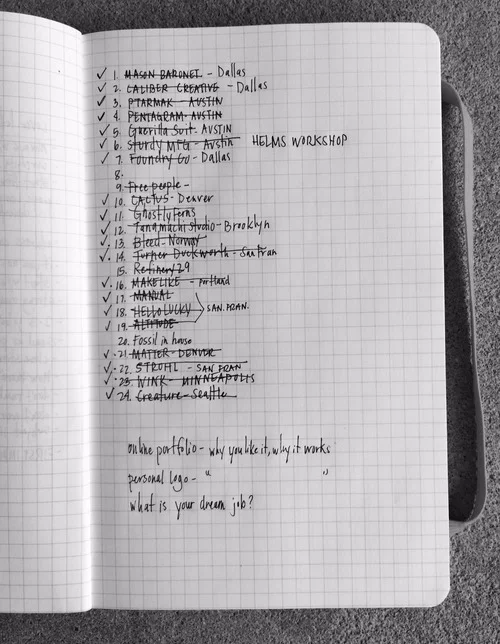 ✓ 1. MASON BARONET - Dallas
✓ 2. CALIBER CREATIVE - Dallas
✓ 3. PTARMAK - AUSTIN
✓ 4. PENTAGRAM - AUSTIN
✓ 5. Guerilla Suit - AUSTIN
✓ 6. Sturdy MFG - Austin HELMS WORKSHOP
✓ 7. Foundry Co - Dallas
8.
9. Free people -
✓ 10. CACTUS - Denver
✓ 11. Ghostly Ferns
✓ 12. Tanamachi studio - Brooklyn
✓ 13. Bleed - Norway
✓ 14. Turner Duckworth - San Fran
15. Refinery 29
✓ 16. MAKELIKE - portland
✓ 17. MANUAL
✓ 18. HELLO LUCKY SAN. FRAN.
✓ 19. ALTITUDE
20. Fossil in house
✓ 21. MATTER - DENVER
✓ 22. STROHL - SAN FRAN
✓ 23. WINK - MINNEAPOLIS
✓ 24. Creature - Seattle
online portfolio - why you like it, why it works
personal logo - " "
what is your dream job?